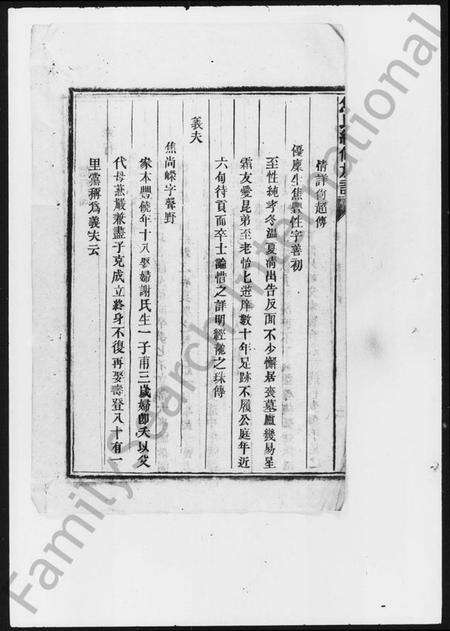 情詳前超傳
優廩生焦豐任字善初
至性純孝冬溫夏凊出告反面不少懈居喪墓廬幾易星
霜友愛昆弟至老怡怡遊庠數十年足跡不履公庭年近
六旬待貢而卒士論惜之詳明經龍之珠傳
義夫
焦尚嶸字聲野
家本豐饒年十八娶婦謝氏生一子甫三歲婦卽夭以父
代母慈嚴兼盡子克成立終身不復再娶壽登八十有一
里黨稱為義夫云
FamilySearch International